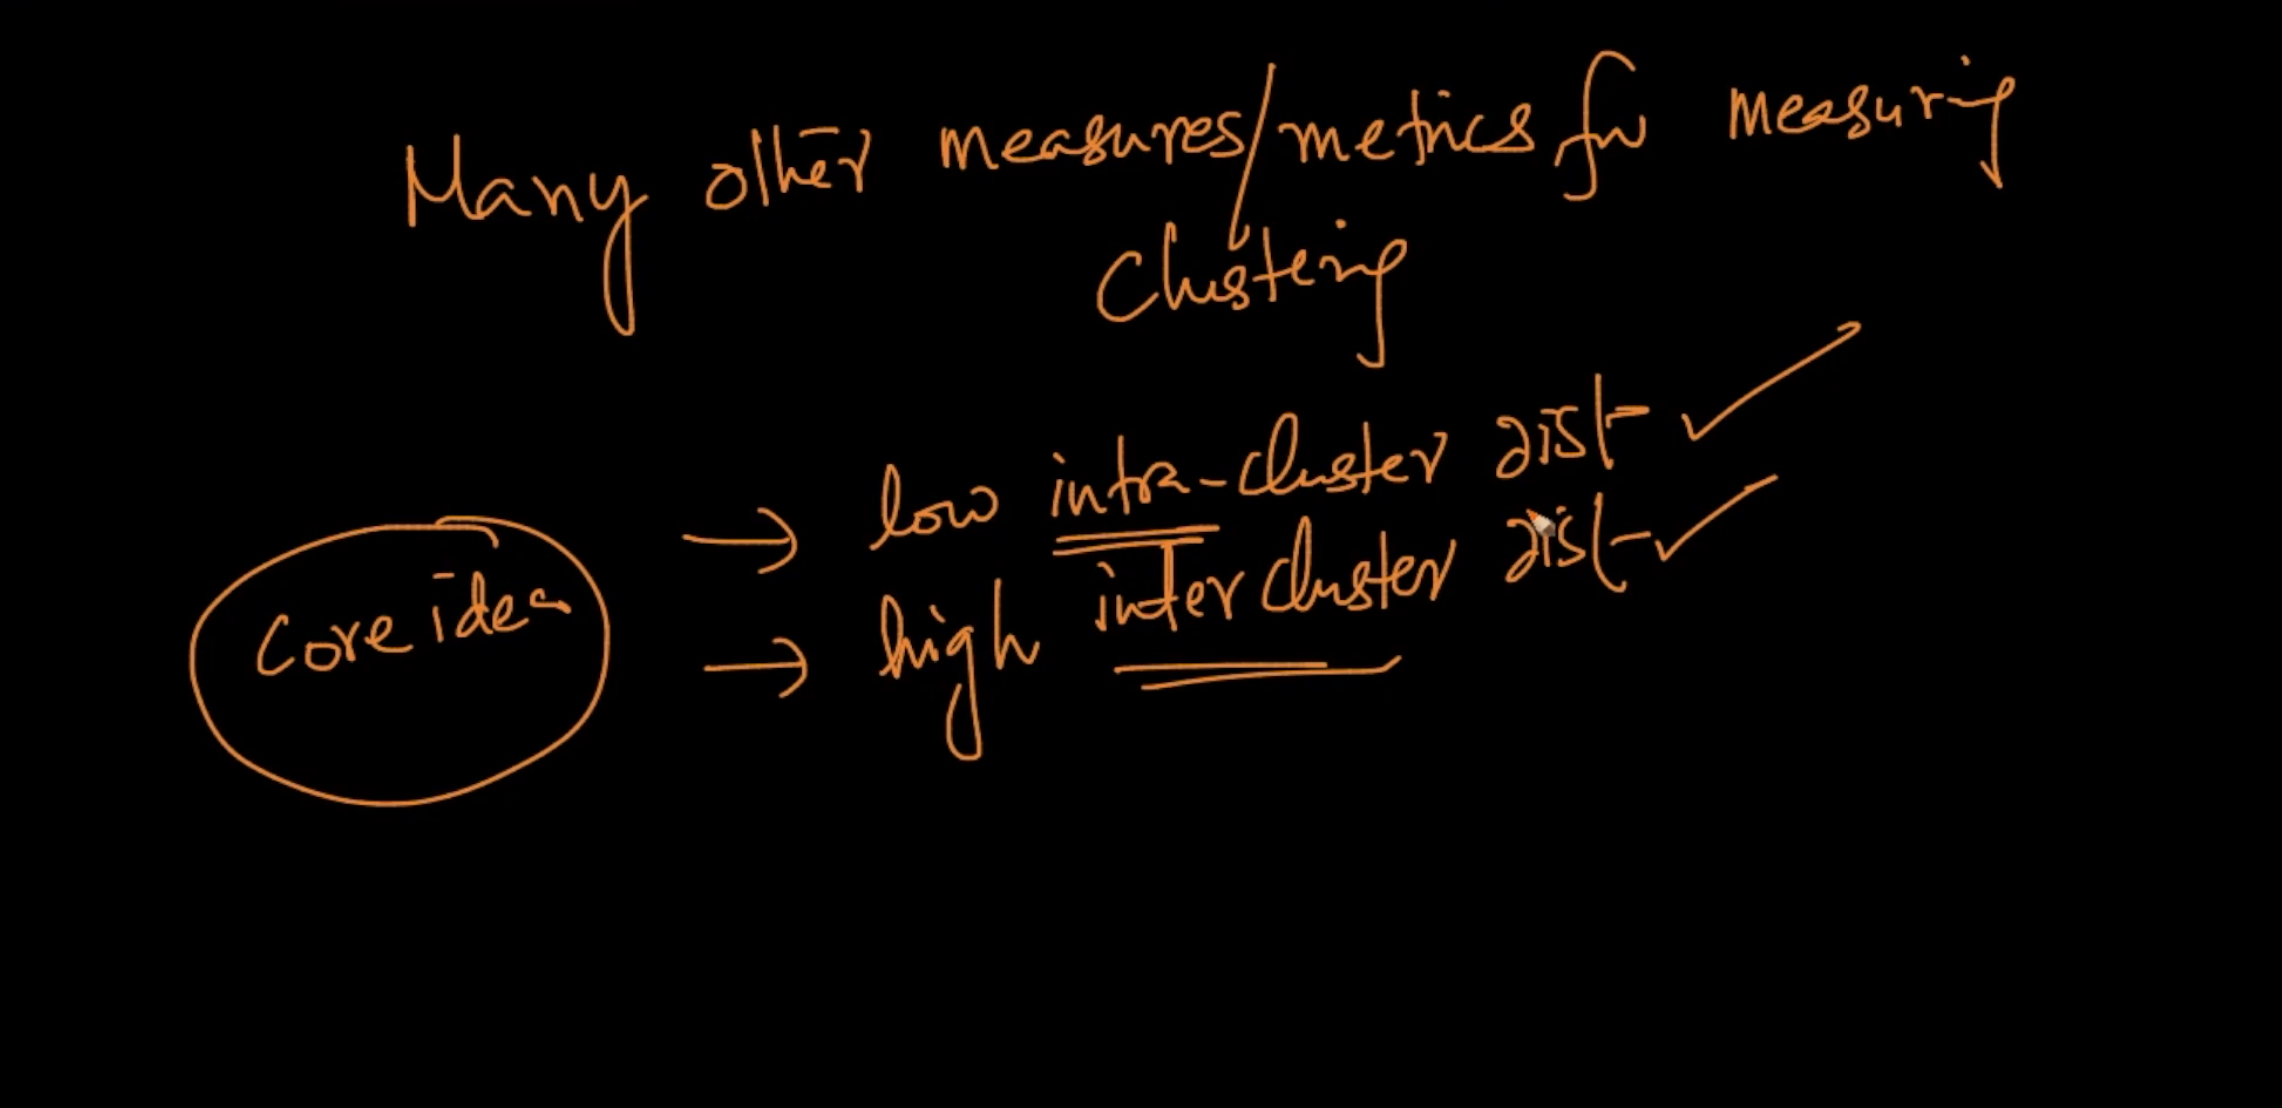 Many other measures/metrics for measuring
Clustering
Core idea
→ low intra-cluster dist
→ high inter cluster dist